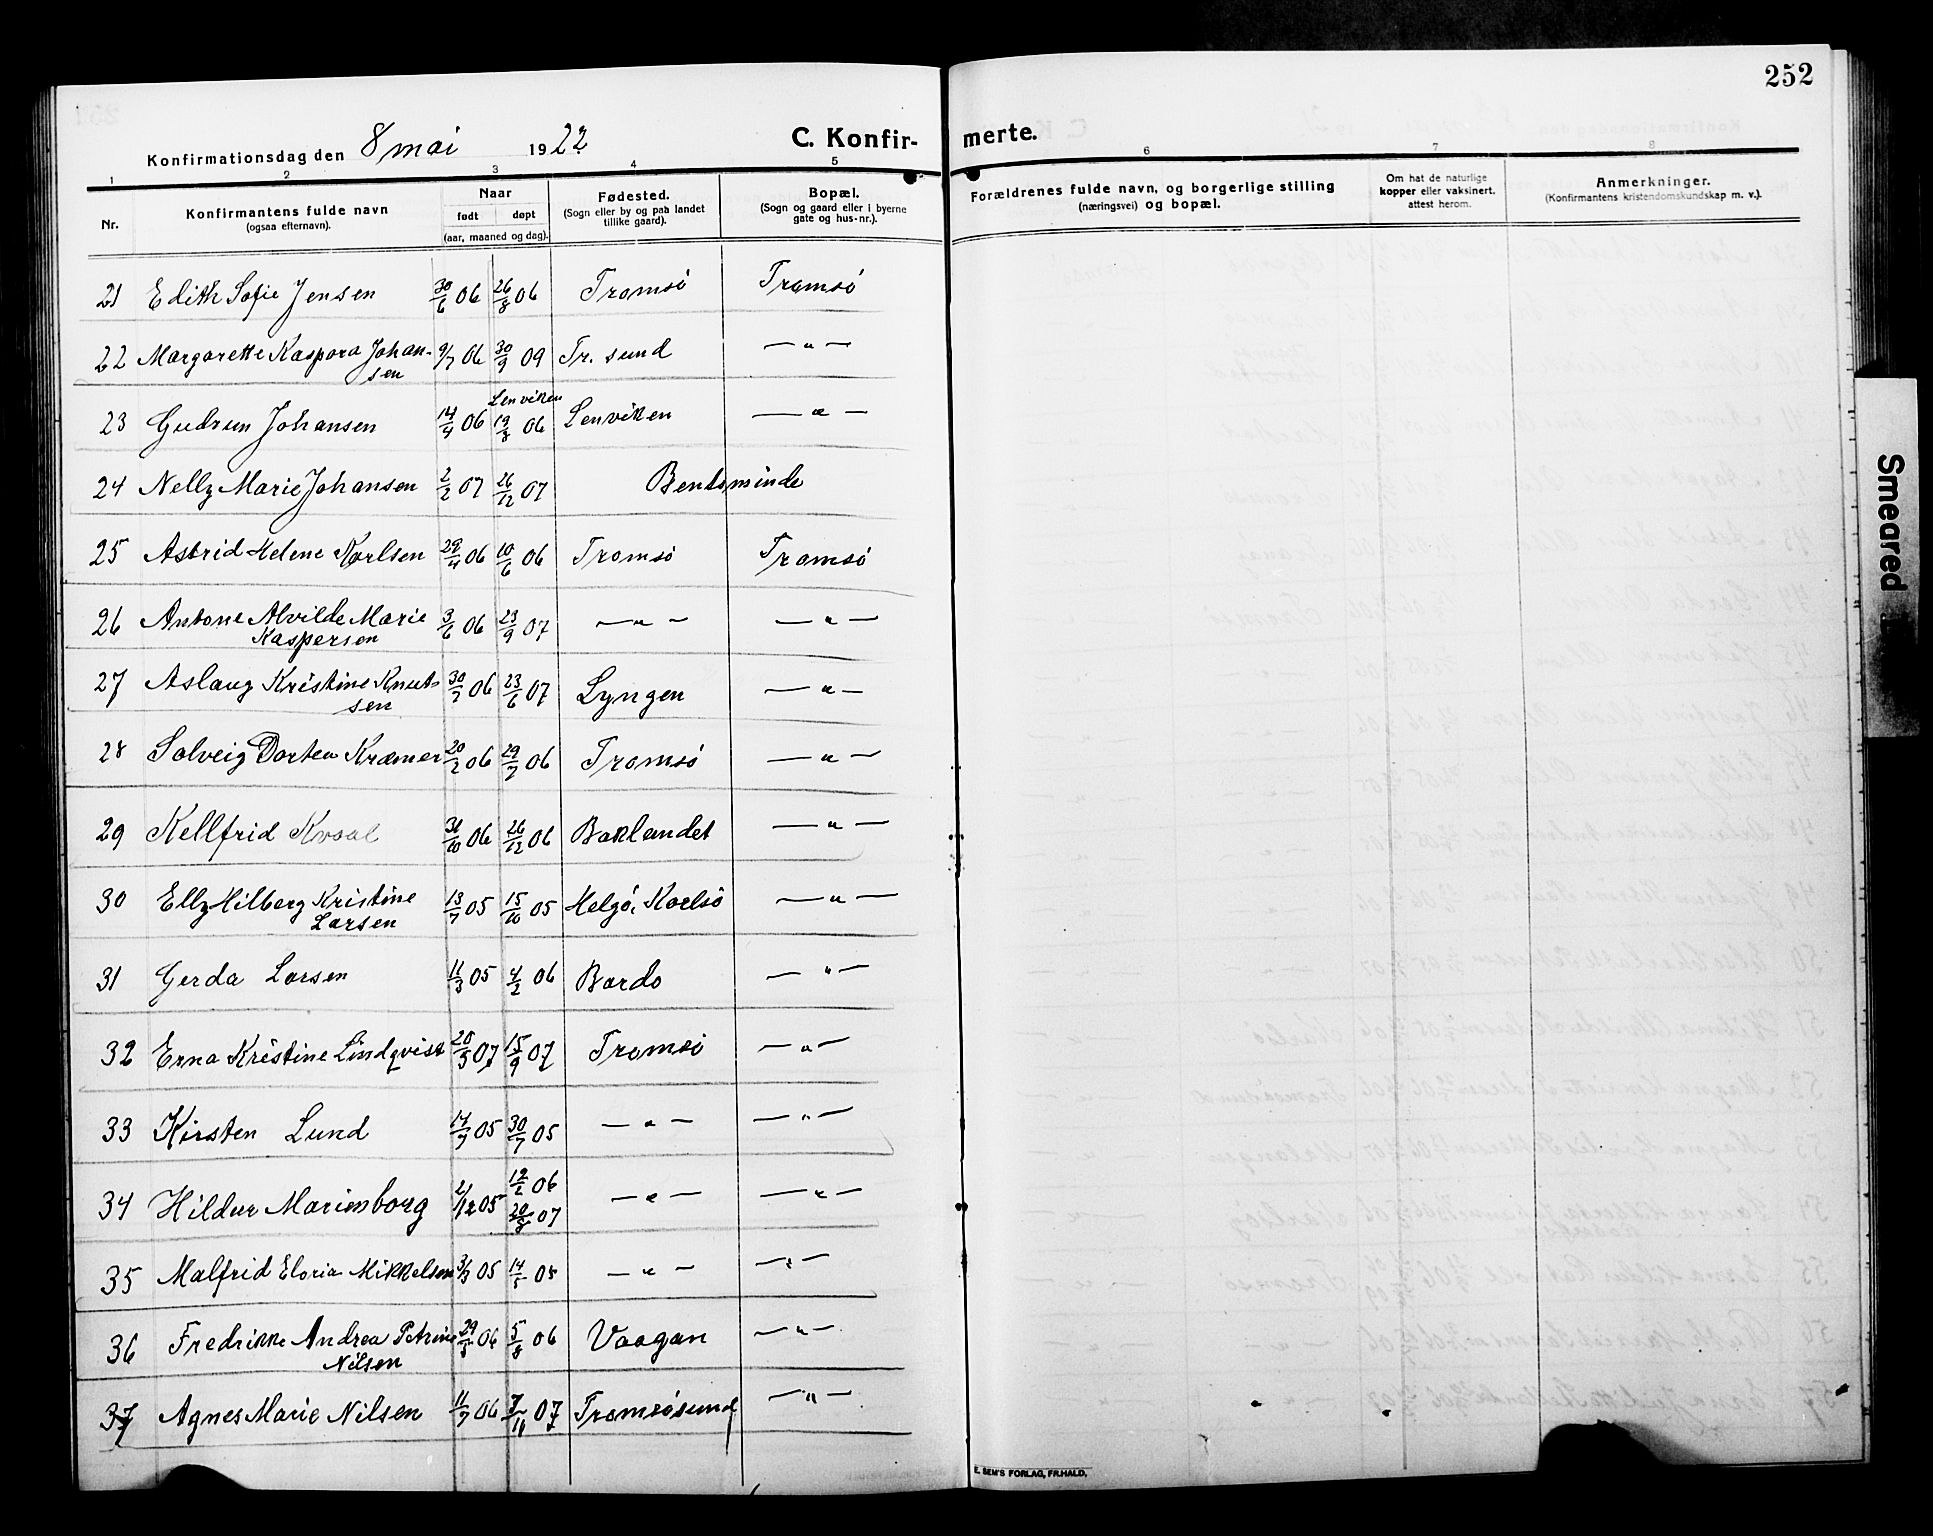 252
Konfirmationsdag den 8 mai 1922
C. Konfirmerte.
1 2 3 4 5 6 7 8
Nr.
Konfirmantens fulde navn
(ogsaa efternavn).
Naar
født døpt
(aar, maaned og dag).
Fødested.
(Sogn eller by og paa landet
tillike gaard).
Bopæl.
(Sogn og gaard eller i byerne
gate og hus-nr.).
Forældrenes fulde navn, og borgerlige stilling
(næringsvei) og bopæl.
Om hat de naturlige
kopper eller vaksinert.
attest herom.
Anmerkninger.
(Konfirmantens kristendomskundskap m. v.).
21 Edith Sofie Jensen 30/6 06 26/8 06 Tromsö Tromsö
22 Margarethe Kaspara Johan-
sen 9/7 06 30/9 09 Tr. sund — " —
Lenviken
23 Gudrun Johansen 14/4 06 19/8 06 Lenviken — " —
24 Nelly Marie Johansen 2/2 07 26/12 07 Bentsminde
25 Astrid Helene Karlsen 29/4 06 10/6 06 Tromsö Tromsö
26 Antone Alvilde Marie
Kaspersen 3/6 06 23/9 07 — " — — " —
27 Aslaug Kristine Knut-
sen 30/7 06 23/6 07 Lyngen — " —
28 Solveig Dortea Kræmer 20/2 06 29/7 06 Tromsö — " —
29 Kellfrid Kvaal 31/10 06 26/12 06 Baklandet — " —
30 Elly Hilberg Kristine
Larsen 13/7 05 15/10 05 Helgö, Karlsö — " —
31 Gerda Larsen 11/3 05 4/2 06 Bardo — " —
32 Erna Kristine Lindqvist 20/5 07 15/9 07 Tromsö — " —
33 Kirsten Lund 14/7 05 30/7 05 — " — — " —
34 Hildur Marienborg 2/12 05 12/2 06 — " — — " —
20/8 07
35 Malfrid Eloria Mikkelsen 3/3 05 14/5 05 — " — — " —
36 Fredrikke Andrea Petrine
Nilsen 29/5 06 5/8 06 Vaagan — " —
37 Agnes Marie Nilsen 11/7 06 7/11 07 Tromsösund — " —
E. SEM'S FORLAG, FR.HALD.
Smeared